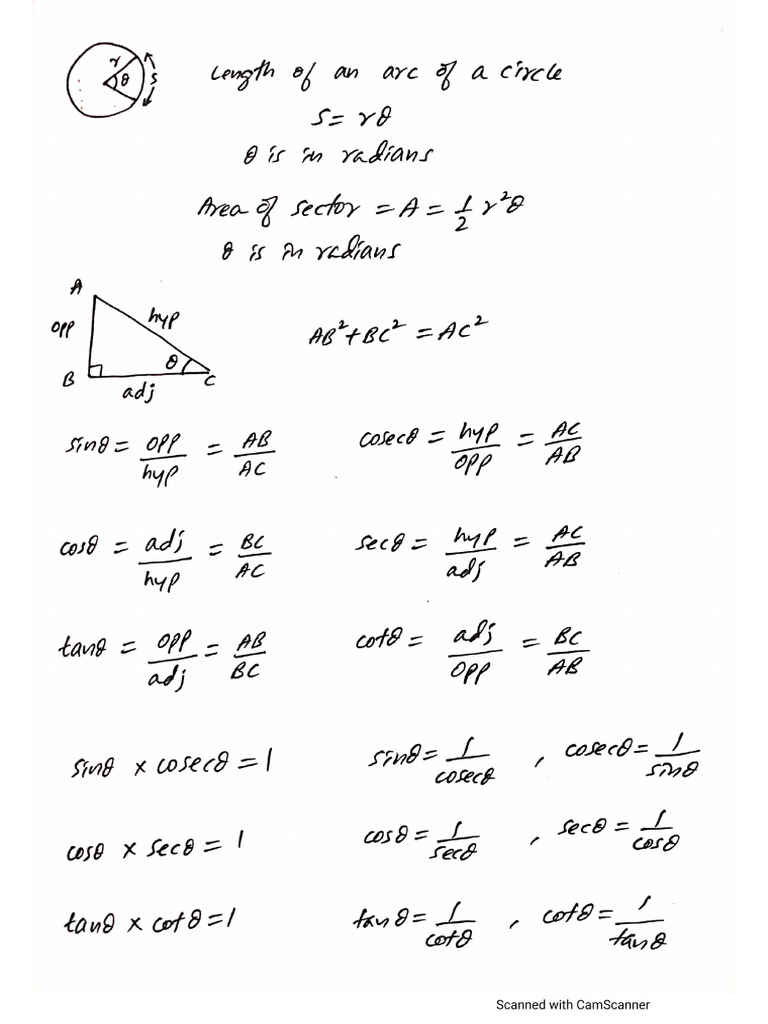 r θ s
Length of an arc of a circle
s = rθ
θ is in radians
Area of sector = A = 1/2 r²θ
θ is in radians
A
opp hyp
AB² + BC² = AC²
B θ C
adj
sinθ = opp/hyp = AB/AC cosecθ = hyp/opp = AC/AB
cosθ = adj/hyp = BC/AC secθ = hyp/adj = AC/AB
tanθ = opp/adj = AB/BC cotθ = adj/opp = BC/AB
sinθ × cosecθ = 1 sinθ = 1/cosecθ , cosecθ = 1/sinθ
cosθ × secθ = 1 cosθ = 1/secθ , secθ = 1/cosθ
tanθ × cotθ = 1 tanθ = 1/cotθ , cotθ = 1/tanθ
Scanned with CamScanner